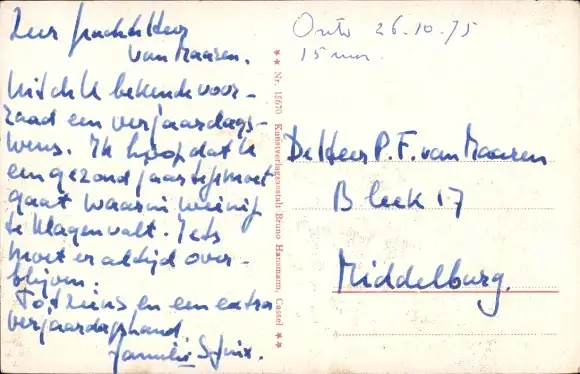 Zeer geachte Heer
van Maaren.
Uit de U bekende voor-
raad een verjaardags-
wens. Ik hoop dat U
een gezond jaar tegemoet
gaat waarin weinig
te klagen valt. Iets
moet er altijd over-
blijven.
Tot ziens en een extra
verjaardagshand.
familie
Ontv 26.10.75
15 uur.
** Nr. 15670 Kunstverlagsanstalt Bruno Hansmann, Cassel **
De Heer P. F. van Maaren
Bleek 17
Middelburg.